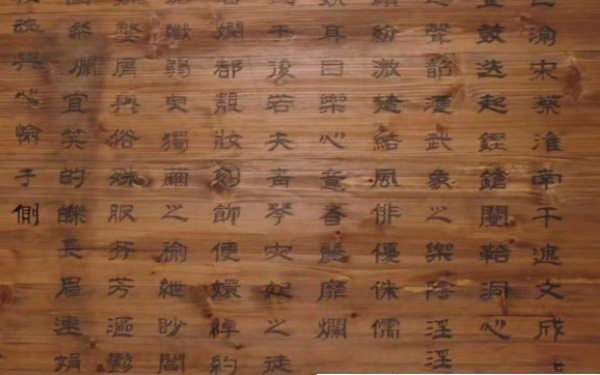 渝宋蔡淮南干遮文成
金鼓迭起鏗鎗闛鞈洞心
之聲韶濩武象之樂陰淫淫
繽紛激楚結風俳優侏儒
娛耳目樂心意者麗靡爛
于後若夫青琴宓妃之徒
嫺都靚妝刻飾便嬛綽約
孅弱曳獨繭之褕紲眇閻
嫳屑與俗殊服芬芳漚鬱
粲爛宜笑的皪長眉連娟
魂與心愉于側